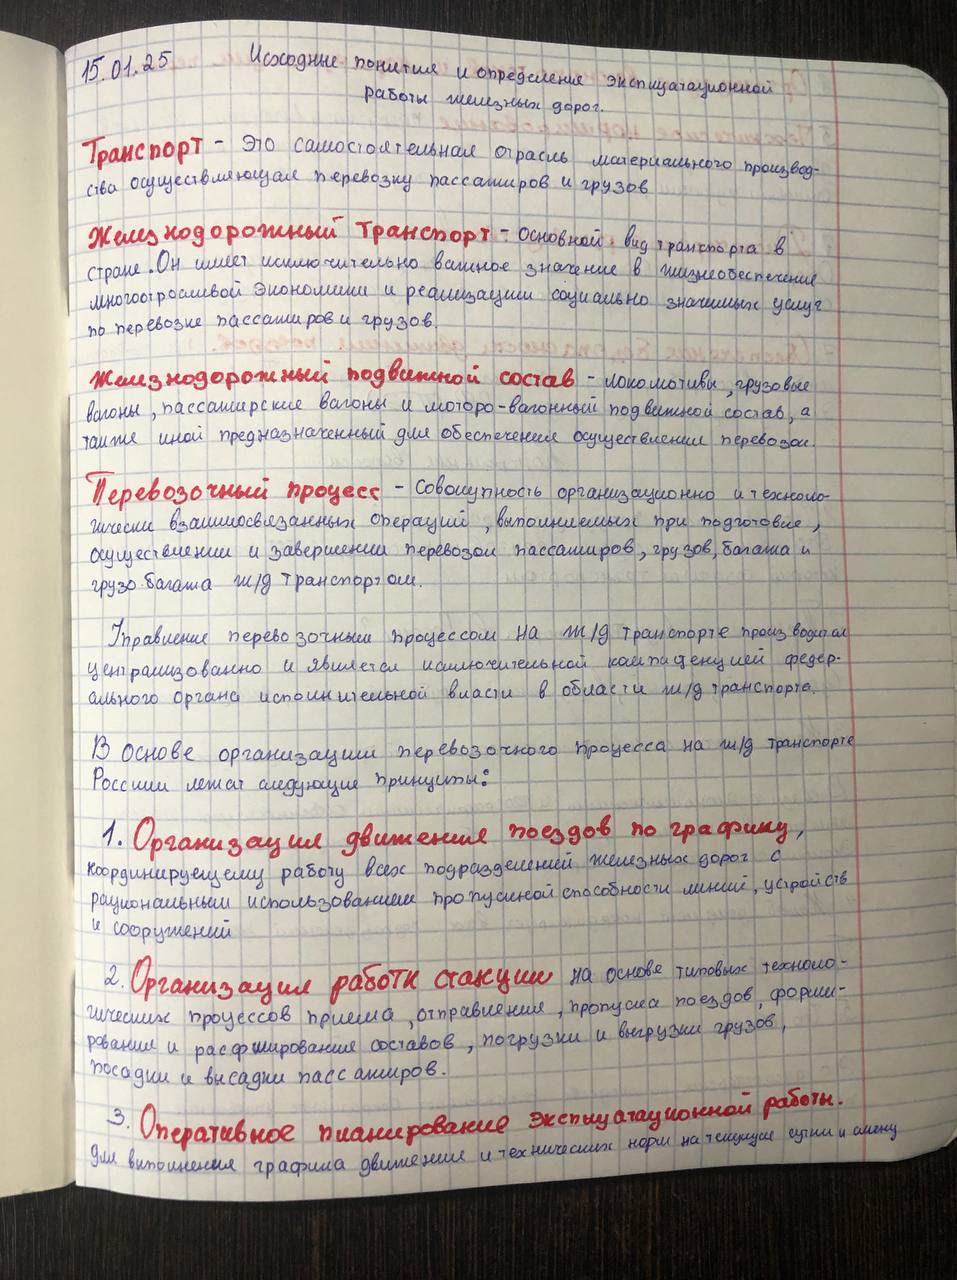 15.01.25. Исходные понятия и определение эксплуатационной
работы железных дорог.
Транспорт - Это самостоятельная отрасль материального производ-
ства осуществляющая перевозку пассажиров и грузов
Железнодорожный транспорт - основной вид транспорта в
стране. Он имеет исключительно важное значение в жизнеобеспечение
многоотраслевой экономики и реализации социально значимых услуг
по перевозке пассажиров и грузов.
Железнодорожный подвижной состав - локомотивы, грузовые
вагоны, пассажирские вагоны и моторо-вагонный подвижной состав, а
также иной предназначенный для обеспечения осуществления перевозок.
Перевозочный процесс - совокупность организационно и техноло-
гически взаимосвязанных операций, выполняемых при подготовке,
осуществлении и завершении перевозок пассажиров, грузов, багажа и
грузо-багажа ж/д транспортом.
Управление перевозочным процессом на ж/д транспорте производится
централизованно и является исключительной компетенцией федер-
ального органа исполнительной власти в области ж/д транспорта.
В основе организации перевозочного процесса на ж/д транспорте
России лежат следующие принципы:
1. Организация движения поездов по графику,
координируещему работу всех подразделений железных дорог с
рациональным использованием пропускной способности линий, устройств
и сооружений
2. Организация работы станции на основе типовых техноло-
гических процессов приема, отправления, пропуска поездов, форми-
рования и расформирования составов, погрузки и выгрузки грузов,
посадки и высадки пассажиров.
3. Оперативное планирование эксплуатационной работы.
для выполнения графика движения и технических норм на текущие сутки и смену